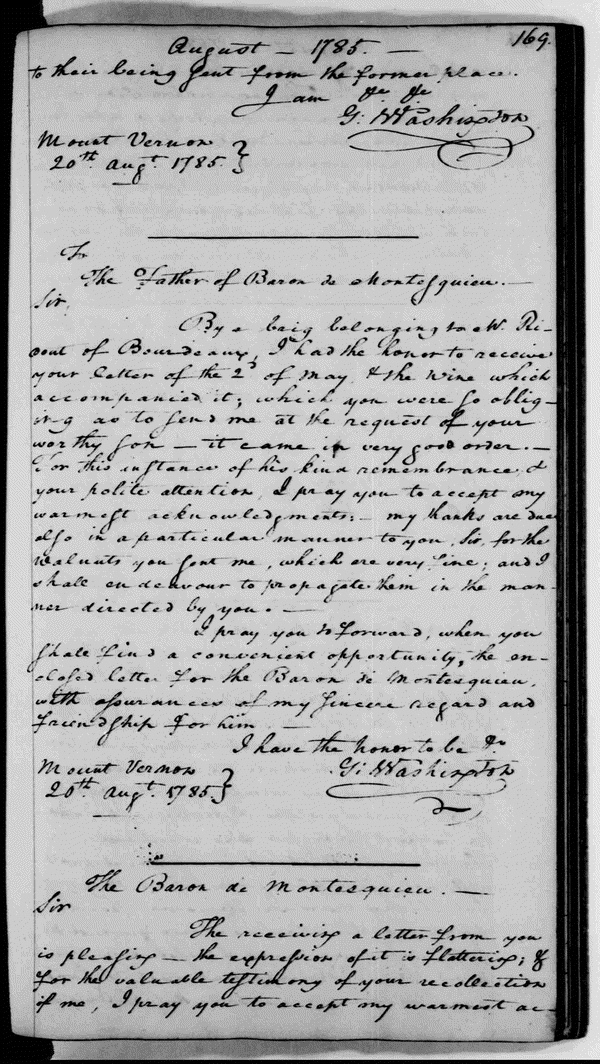 August — 1785. —
169.
to their being sent from the former place.
I am &c &c
G: Washington
Mount Vernon
20th Augt. 1785.
To
The Father of Baron de Montesquieu. —
Sir,
By a brig belonging to Mr. Ri-
dout of Bourdeaux, I had the honor to receive
your letter of the 2d of May, & the wine which
accompanied it; which you were so oblig-
ing as to send me at the request of your
worthy son — it came in very good order. —
For this instance of his kind remembrance, &
your polite attention, I pray you to accept my
warmest acknowledgments: — my thanks are due
also in a particular manner to you, Sir, for the
walnuts you sent me, which are very fine; and I
shall endeavour to propagate them in the man-
ner directed by you. —
I pray you to forward, when you
shall find a convenient opportunity, the en-
closed letter for the Baron de Montesquieu,
with assurances of my sincere regard and
friendship for him. —
I have the honor to be &c
G: Washington
Mount Vernon
20th Augt. 1785
The Baron de Montesquieu. —
Sir
The receiving a letter from you
is pleasing — the expression of it is flattering; &
for the valuable testimony of your recollection
of me, I pray you to accept my warmest ac-